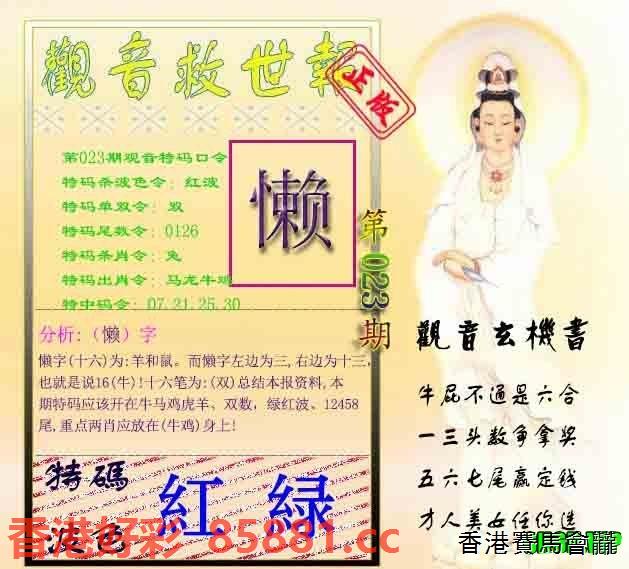 觀音救世報
正版
第023期观音特码口令
特码杀波色令：红波
特码单双令：双
特码尾数令：0126
特码杀肖令：兔
特码出肖令：马龙牛鸡
特中码令：07.21.25.30
懒
第023期
分析:（懒）字
懒字(十六)为:羊和鼠。而懒字左边为三,右边为十三,
也就是说16(牛)!十六笔为:(双)总结本报资料,本
期特码应该开在牛马鸡虎羊、双数，绿红波、12458
尾,重点两肖应放在(牛鸡)身上!
特碼
波色
紅 綠
觀音玄機書
牛屁不通是六合
一三头数争拿奖
五六七尾赢定钱
才人美女任你选
香港好彩 85881.cc
香港賽馬會